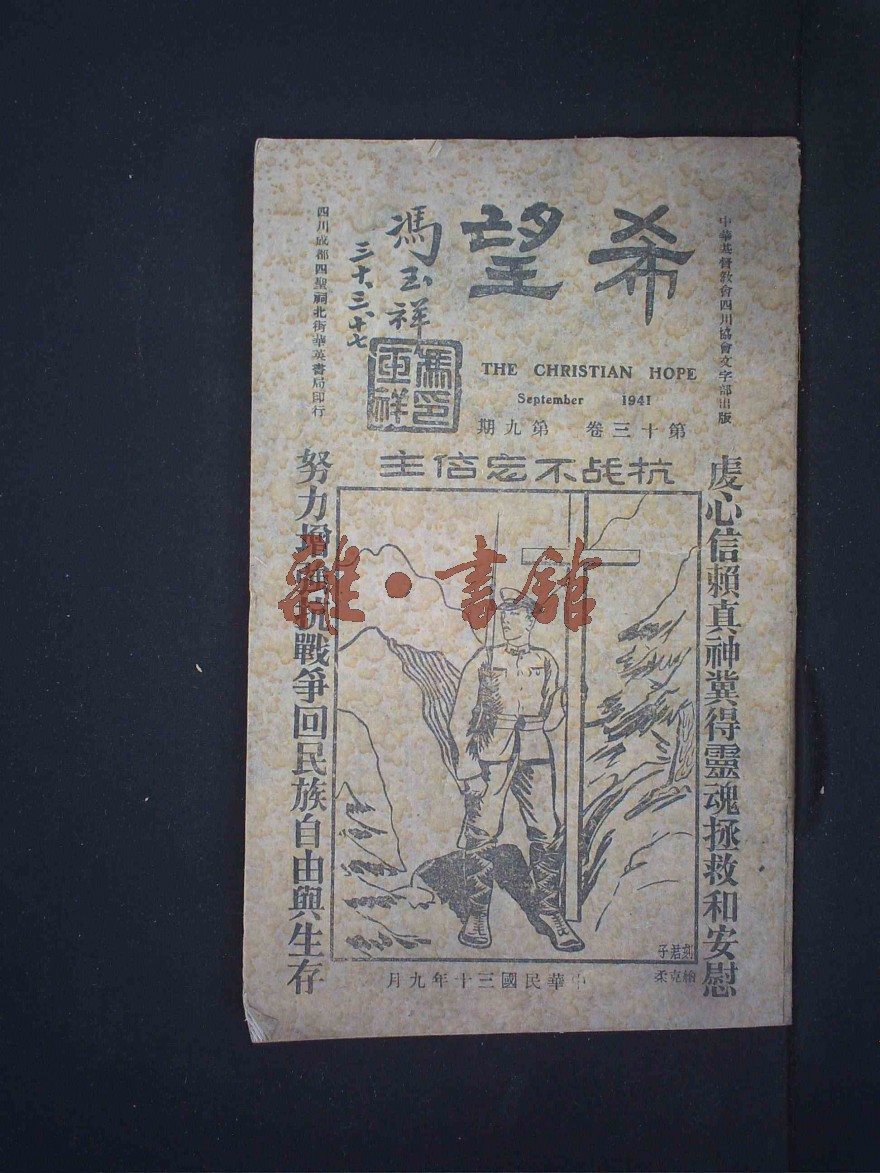 中華基督敎會四川協會文字部出版
希望
馮玉祥
三十、三、十七
馮玉祥印
四川成都四聖祠北街華英書局印行
THE CHRISTIAN HOPE
September 1941
第十三卷 第九期
抗战不忘信主
虔心信賴真神冀得靈魂拯救和安慰
努力增強抗戰爭回民族自由與生存
雜·書館
君子刻
克柔繪
中華民國三十年九月